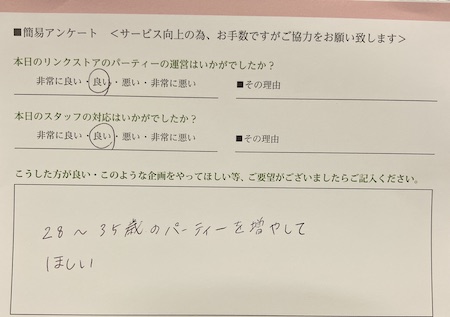 ■簡易アンケート ＜サービス向上の為、お手数ですがご協力をお願い致します＞
本日のリンクストアのパーティーの運営はいかがでしたか？
非常に良い・良い・悪い・非常に悪い ■その理由
本日のスタッフの対応はいかがでしたか？
非常に良い・良い・悪い・非常に悪い ■その理由
こうした方が良い・このような企画をやってほしい等、ご要望がございましたらご記入ください。
28～35歳のパーティーを増やして
ほしい